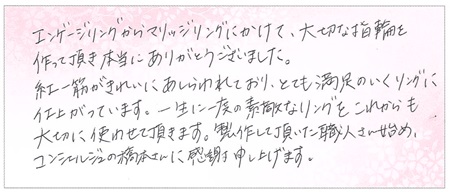 エンゲージリングからマリッジリングにかけて、大切な指輪を
作って頂き本当にありがとうございました。
紅一筋がきれいにあしらわれており、とても満足のいくリングに
仕上がっています。一生に一度の素敵なリングをこれからも
大切に使わせて頂きます。製作して頂いた職人さん始め、
コンシェルジュの橋本さんに感謝申し上げます。